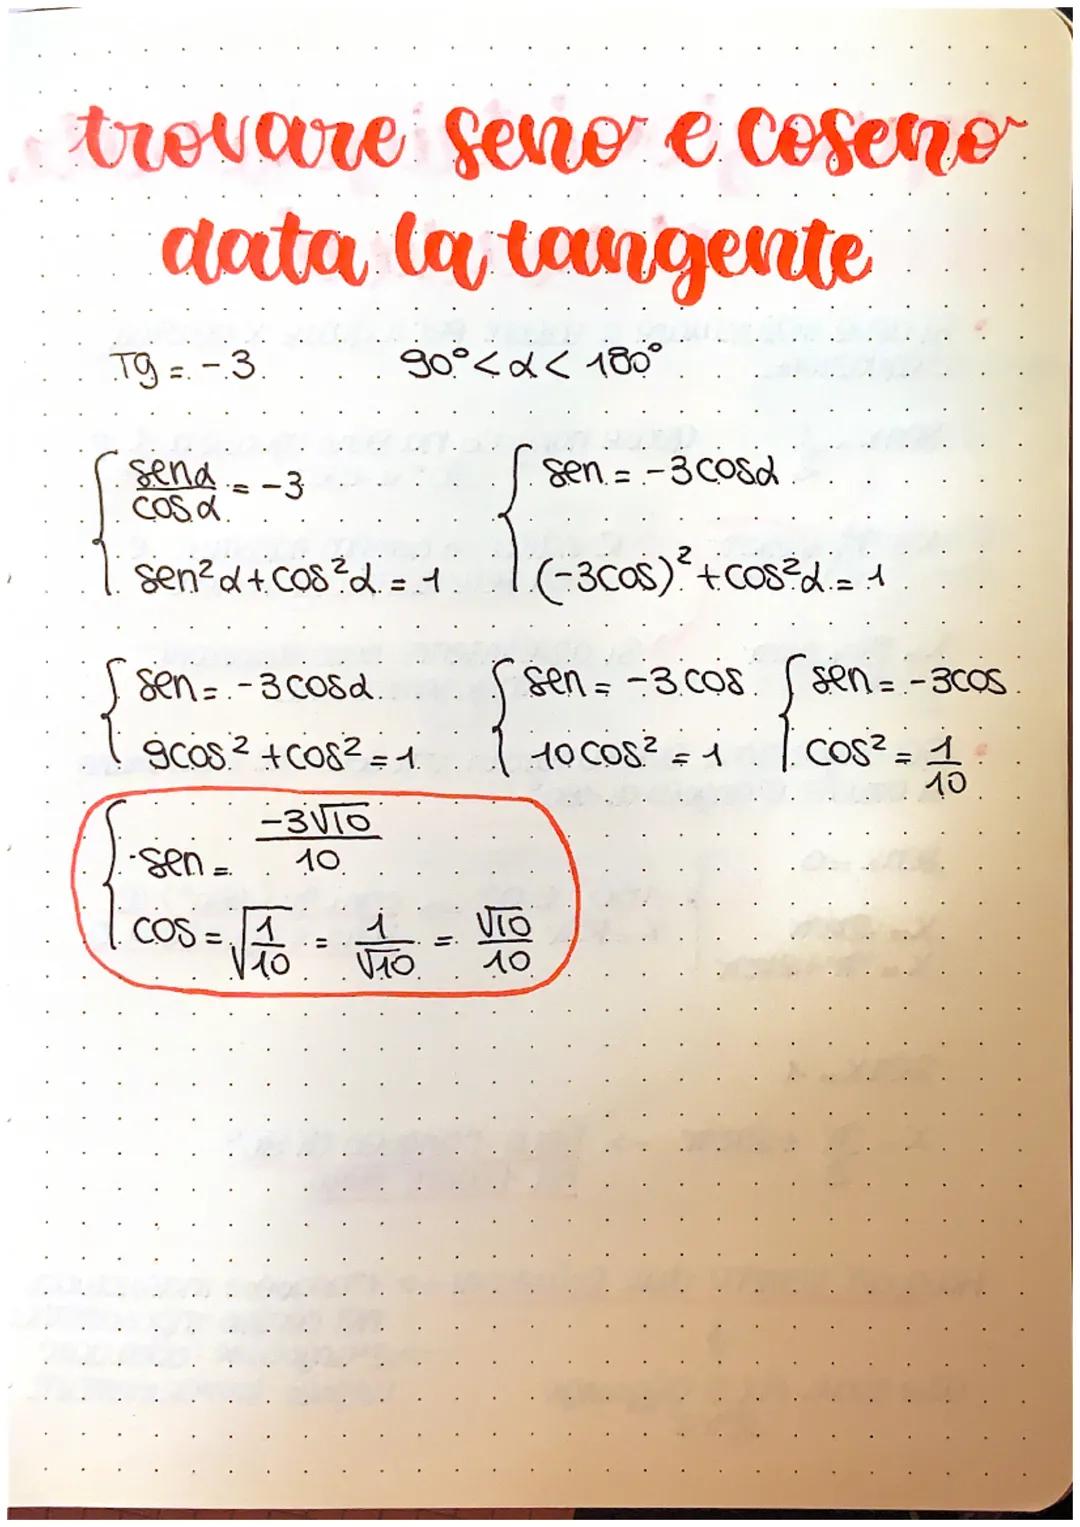 trovare seno e coseno
data la tangente
Tg = -3 90° < α < 180°
{ senα/cosα = -3 { sen = -3cosα
sen²α + cos²α = 1 (-3cos)² + cos²α = 1
{ sen = -3cosα { sen = -3cos { sen = -3cos
9cos² + cos² = 1 10cos² = 1 cos² = 1/10
{ sen = -3√10/10
cos = √1/10 = 1/√10 = √10/10